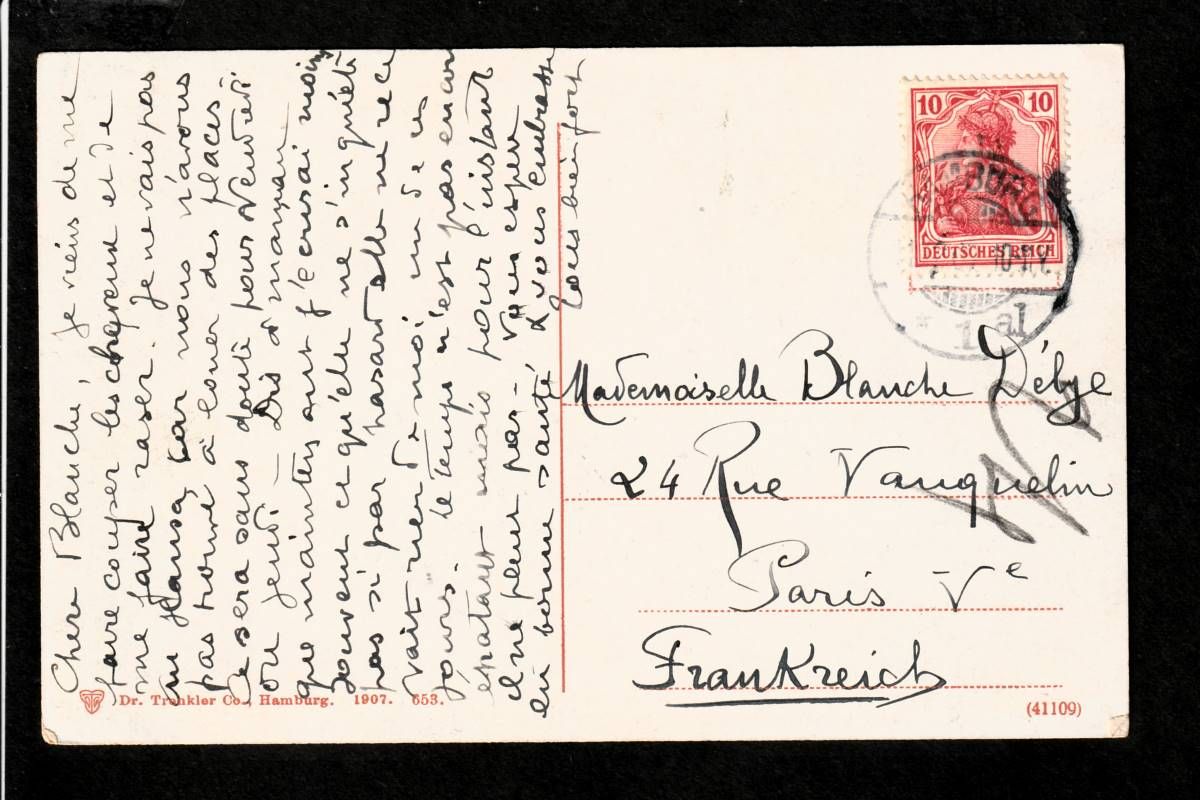 Chère Blanche, je viens de me
faire couper les cheveux et de
me faire raser. Je ne vais pas
au Hansa car nous n'avons
pas trouvé à louer des places
Ce sera sans doute pour Vendredi
ou jeudi — Dis à maman
que maintenant j'écrirai moins
souvent ce qu'elle ne s'inquiète
pas si par hasard elle ne rece
vait rien de moi un de ces
jours. le temps n'est pas encore
épatant mais pour l'instant
il ne pleut pas — Vous espère
en bonne santé & vous embrasse
tous bien fort
10 10
DEUTSCHES REICH
BURG
1 al
Mademoiselle Blanche Débye
24 Rue Vauquelin
Paris Ve
Frankreich
Dr. Trenkler Co., Hamburg. 1907. 653.
(41109)